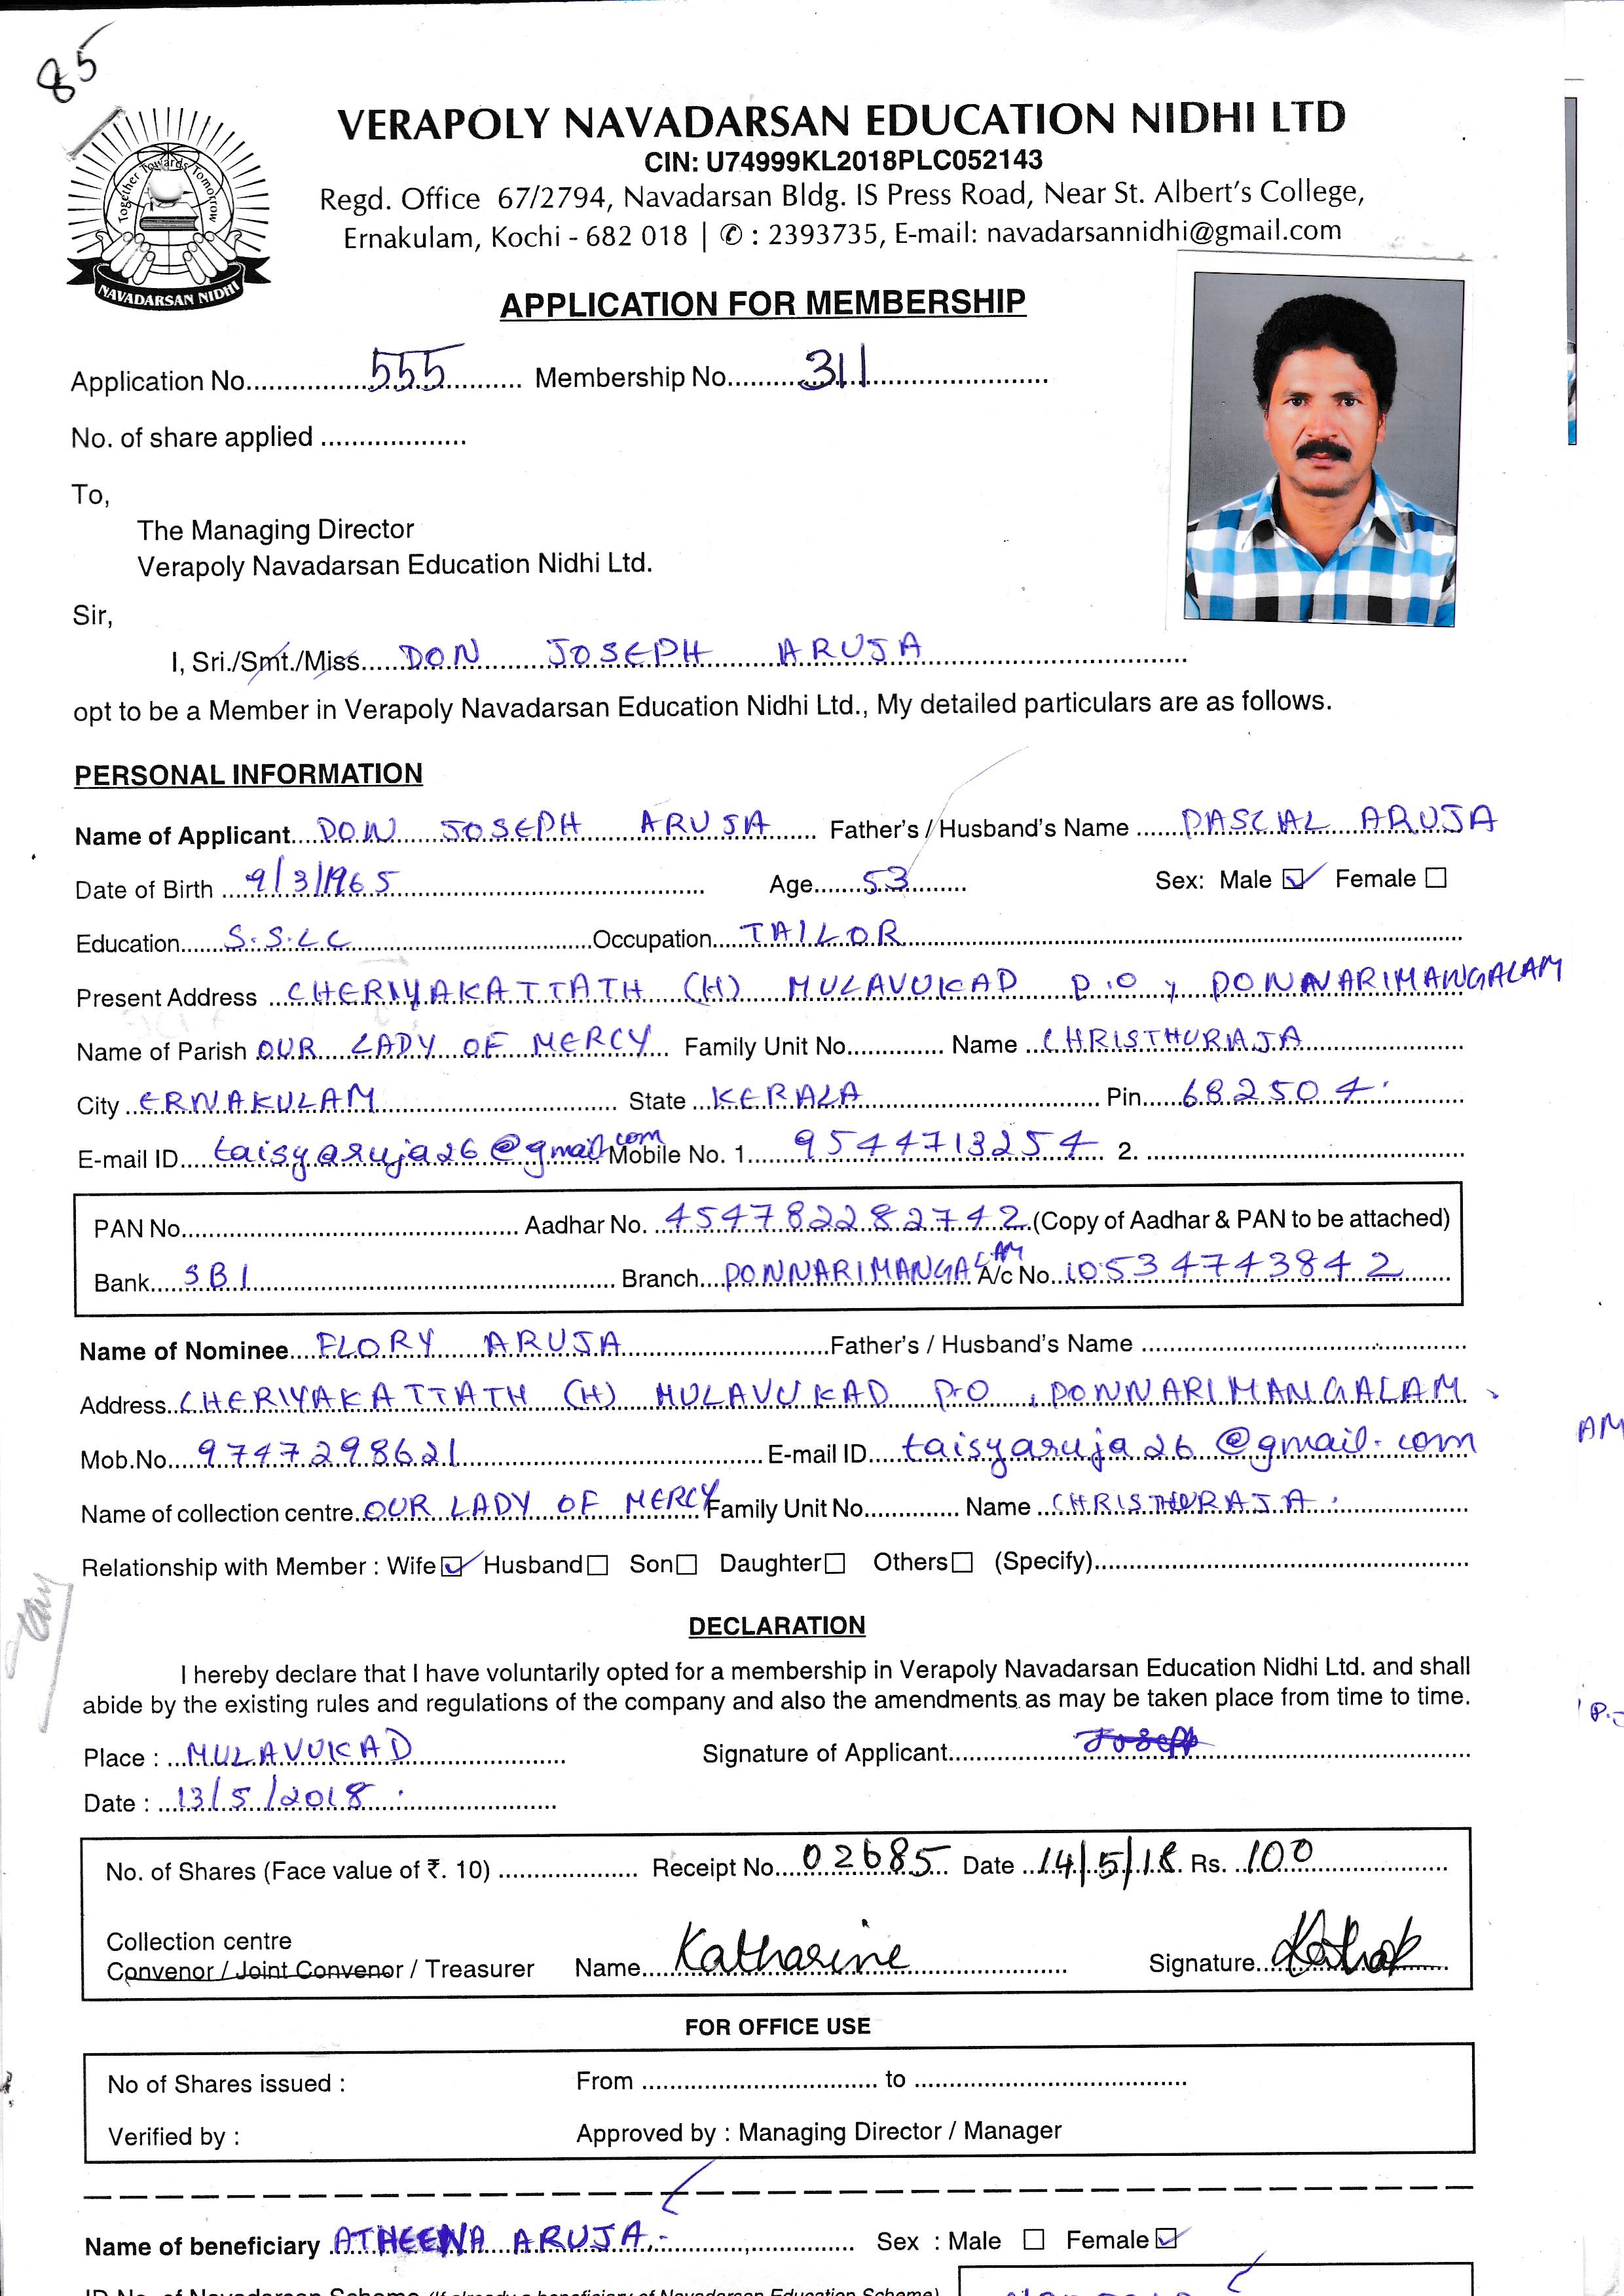 85
Together Towards Tomorrow
NAVADARSAN NIDHI
VERAPOLY NAVADARSAN EDUCATION NIDHI LTD
CIN: U74999KL2018PLC052143
Regd. Office 67/2794, Navadarsan Bldg. IS Press Road, Near St. Albert's College,
Ernakulam, Kochi - 682 018 | ✆ : 2393735, E-mail: navadarsannidhi@gmail.com
APPLICATION FOR MEMBERSHIP
Application No. 555 Membership No. 311
No. of share applied
To,
The Managing Director
Verapoly Navadarsan Education Nidhi Ltd.
Sir,
I, Sri./Smt./Miss DON JOSEPH ARUJA
opt to be a Member in Verapoly Navadarsan Education Nidhi Ltd., My detailed particulars are as follows.
PERSONAL INFORMATION
Name of Applicant DON JOSEPH ARUJA Father's / Husband's Name PASCAL ARUJA
Date of Birth 9/3/1965 Age 53 Sex: Male ☑ Female ☐
Education S.S.L.C Occupation TAILOR
Present Address CHERIYAKATTATH (H) MULAVUKAD P.O, PONNARIMANGALAM
Name of Parish OUR LADY OF MERCY Family Unit No. Name CHRISTHURAJA
City ERNAKULAM State KERALA Pin 682504
E-mail ID taisyaruja26@gmail.com Mobile No. 1. 9544713254 2.
PAN No. Aadhar No. 454782282742 (Copy of Aadhar & PAN to be attached)
Bank SBI Branch PONNARIMANGALAM A/c No. 10534743842
Name of Nominee FLORY ARUJA Father's / Husband's Name
Address CHERIYAKATTATH (H) MULAVUKAD P.O, PONNARIMANGALAM
Mob.No. 9747298621 E-mail ID taisyaruja26@gmail.com
AM
Name of collection centre OUR LADY OF MERCY Family Unit No. Name CHRISTHURAJA
Relationship with Member : Wife ☑ Husband ☐ Son ☐ Daughter ☐ Others ☐ (Specify)
DECLARATION
I hereby declare that I have voluntarily opted for a membership in Verapoly Navadarsan Education Nidhi Ltd. and shall
abide by the existing rules and regulations of the company and also the amendments as may be taken place from time to time.
Place : MULAVUKAD Signature of Applicant Joseph
Date : 13/5/2018
No. of Shares (Face value of ₹. 10) Receipt No. 02685 Date 14/5/18 Rs. 100
Collection centre
Convenor / Joint Convenor / Treasurer Name Katharine Signature
FOR OFFICE USE
No of Shares issued : From to
Verified by : Approved by : Managing Director / Manager
Name of beneficiary ATHEENA ARUJA Sex : Male ☐ Female ☑
ID No. of Navadarsan Scheme (If already a beneficiary of Navadarsan Education Scheme)